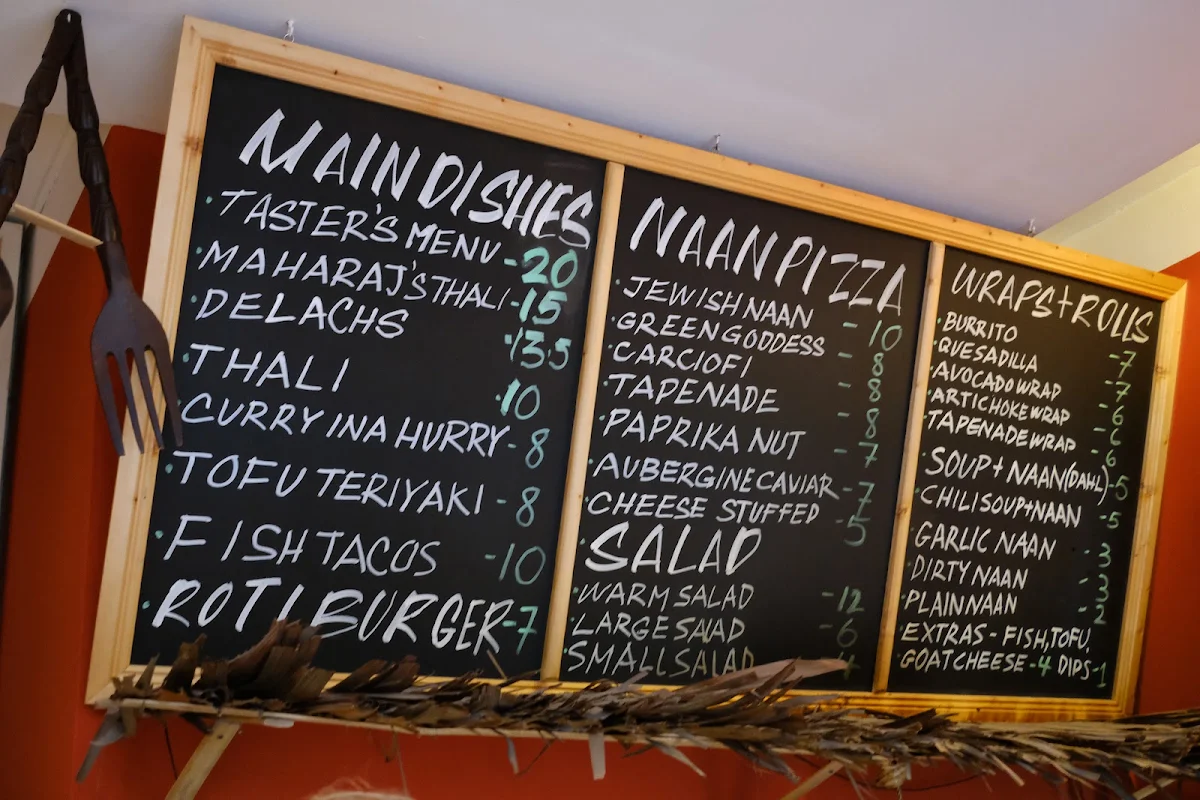 MAIN DISHES
·TASTER'S MENU -20
·MAHARAJ'S THALI -15
·DELACHS ·13.5
·THALI ·10
·CURRY IN A HURRY -8
·TOFU TERIYAKI -8
·FISH TACOS -10
·ROTI BURGER -7
NAAN PIZZA
·JEWISH NAAN -10
·GREEN GODDESS -8
·CARCIOFI -8
·TAPENADE -8
·PAPRIKA NUT -7
·AUBERGINE CAVIAR -7
·CHEESE STUFFED -5
·SALAD
·WARM SALAD -12
·LARGE SALAD -6
·SMALL SALAD
WRAPS + ROLLS
·BURRITO -7
·QUESADILLA -7
·AVOCADO WRAP -6
·ARTICHOKE WRAP -6
·TAPENADE WRAP -6
·SOUP + NAAN (DAHL) -5
·CHILI SOUP + NAAN -5
·GARLIC NAAN -3
·DIRTY NAAN -3
·PLAIN NAAN -2
·EXTRAS - FISH, TOFU,
GOAT CHEESE -4 DIPS -1